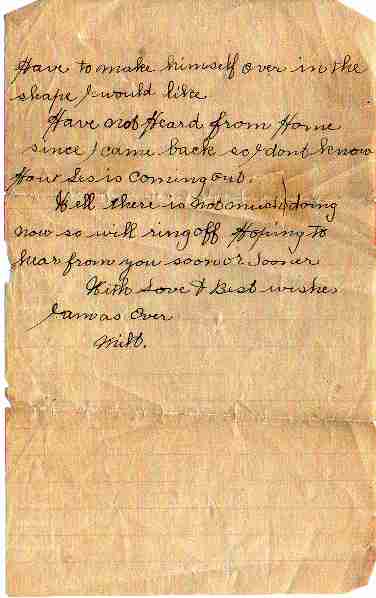 Have to make himself over in the
shape I would like
Have not Heard from Home
since I came back so I dont know
How Ses is coming out.
Well there is not much doing
now so will ring off Hoping to
hear from you soon or sooner
With Love & Best wishes
I am as Ever
Milt.